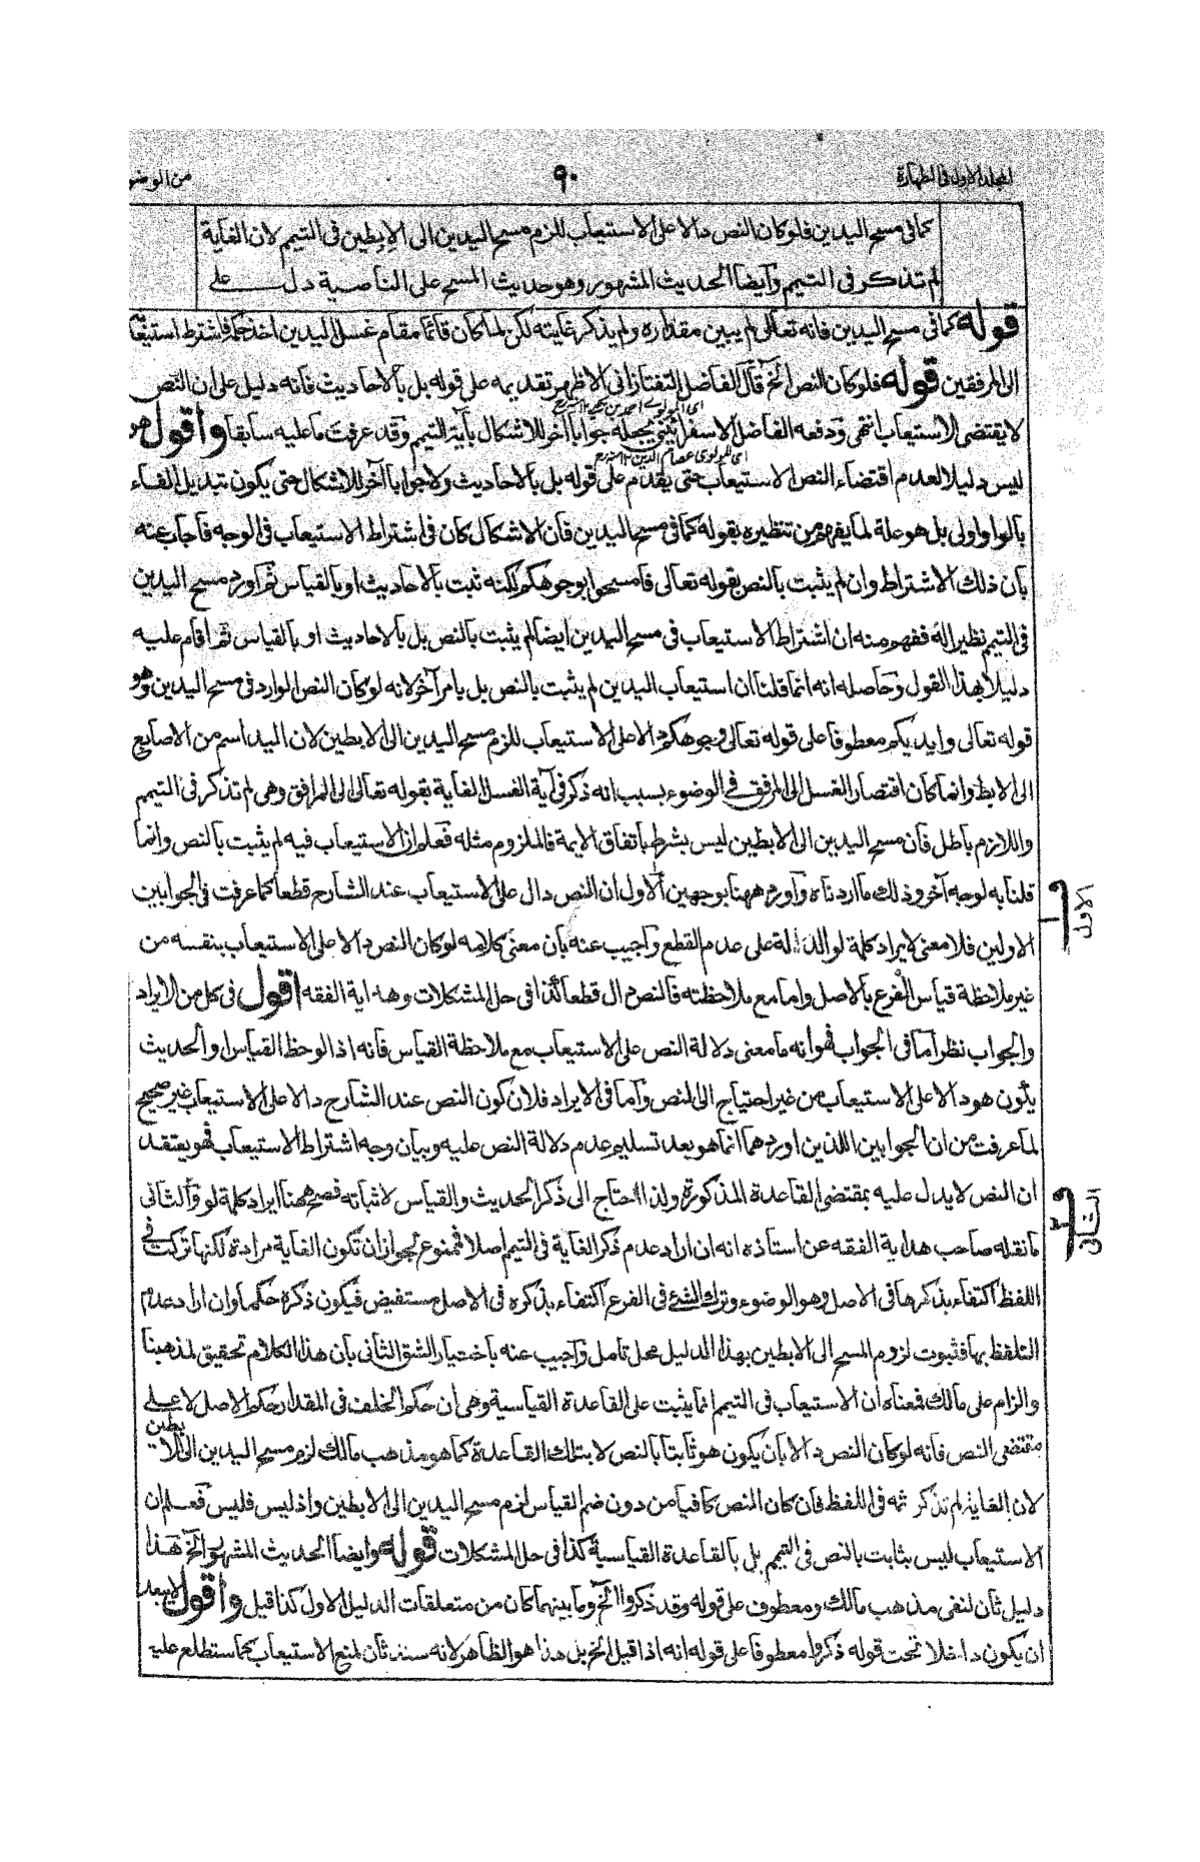 المجلد الاول فى الطهارة
٩٠
من الوضو
كما فى مسح اليدين فلو كان النص دالا على الاستيعاب للزم مسح اليدين الى الابطين فى التيمم لان الغاية
لم تذكر فى التيمم وايضا الحديث المشهور وهو حديث المسح على الناصية دل على
قوله كما فى مسح اليدين فانه تعالى لم يبين مقداره ولم يذكر غايته لكن لما كان قائما مقام غسل اليدين اخذ حكمه فاشترط استيعا
الى المرفقين قوله فلو كان النص الخ قال الفاضل التفتازانى الاظهر تقديمه على قوله بل بالاحاديث فانه دليل على ان النص
لا يقتضى الاستيعاب انتهى ودفعه الفاضل الاسفرائينى بجعله جوابا آخر للاشكال بآية التيمم وقد عرفت ما عليه سابقا واقول هو
اى المولوى عصام الدين ١٢
ليس دليلا لعدم اقتضاء النص الاستيعاب حتى يقدم على قوله بل بالاحاديث ولا جوابا آخر للاشكال حتى يكون تبديل الفاء
بالواو اولى بل هو علة لما يفهم من تنظيره بقوله كما فى مسح اليدين فان الاشكال كان فى اشتراط الاستيعاب فى الوجه فاجاب عنه
بان ذلك الاشتراط وان لم يثبت بالنص بقوله تعالى فامسحوا بوجوهكم لكنه ثبت بالاحاديث او بالقياس ثم اورد مسح اليدين
فى التيمم نظيرا له ففهم منه ان اشتراط الاستيعاب فى مسح اليدين ايضا لم يثبت بالنص بل بالاحاديث او بالقياس ثم اقام عليه
دليلا بهذا القول وحاصله انه انما قلنا ان استيعاب اليدين لم يثبت بالنص بل بامر آخر لانه لو كان النص الوارد فى مسح اليدين وهو
قوله تعالى وايديكم معطوفا على قوله تعالى وجوهكم دالا على الاستيعاب للزم مسح اليدين الى الابطين لان اليد اسم من الاصابع
الى الابط وانما كان اقتصار الغسل الى المرفق فى الوضوء بسبب انه ذكر فى آية الغسل الغاية بقوله تعالى الى المرافق وهى لم تذكر فى التيمم
واللازم باطل فان مسح اليدين الى الابطين ليس بشرط باتفاق الايمة فالملزوم مثله فعلم ان الاستيعاب فيه لم يثبت بالنص وانما
قلنا به لوجه آخر وذلك ما اردناه واورد ههنا بوجهين الاول ان النص دال على الاستيعاب عند الشارح قطعا كما عرفت فى الجوابين
الاول
الاولين فلا معنى لايراد كلمة لو الدالة على عدم القطع واجيب عنه بان معنى كلامه لو كان النص دالا على الاستيعاب بنفسه من
غير ملاحظة قياس الفرع بالاصل واما مع ملاحظته فالنص دال قطعا كذا فى حل المشكلات وهداية الفقه اقول فى كل من الايراد
والجواب نظر اما فى الجواب فهو انه ما معنى دلالة النص على الاستيعاب مع ملاحظة القياس فانه اذا لوحظ القياس او الحديث
يكون هو دالا على الاستيعاب من غير احتياج الى النص واما فى الايراد فلان كون النص عند الشارح دالا على الاستيعاب غير صحيح
لما عرفت من ان الجوابين اللذين اوردهما انما هو بعد تسليم عدم دلالة النص عليه وبيان وجه اشتراط الاستيعاب فهو يعتقد
ان النص لا يدل عليه بمقتضى القاعدة المذكورة ولذا احتاج الى ذكر الحديث والقياس لاثباته فصح ههنا ايراد كلمة لو والثانى
الثانى
ما نقله صاحب هداية الفقه عن استاذه انه ان اراد عدم ذكر الغاية فى التيمم اصلا فممنوع لجواز ان تكون الغاية مرادة لكنها تركت فى
اللفظ اكتفاء بذكرها فى الاصل وهو الوضوء وترك الشئ فى الفرع اكتفاء بذكره فى الاصل مستفيض فيكون ذكره حكما وان اراد عدم
التلفظ بها فثبوت لزوم المسح الى الابطين بهذا الدليل محل تامل واجيب عنه باختيار الشق الثانى بان هذا الكلام تحقيق لمذهبنا
والزام على مالك فمعناه ان الاستيعاب فى التيمم انما يثبت على القاعدة القياسية وهى ان حكم الخلف فى المقدار حكم الاصل لا على
مقتضى النص فانه لو كان النص دالا بان يكون هو ثابتا بالنص لا بتلك القاعدة كما هو مذهب مالك لزم مسح اليدين الى الابطين
لان الغاية لم تذكر ثمه فى اللفظ فان كان النص كافيا من دون ضم القياس لزم مسح اليدين الى الابطين واذ ليس فليس فعلم ان
الاستيعاب ليس بثابت بالنص فى التيمم بل بالقاعدة القياسية كذا فى حل المشكلات قوله وايضا الحديث المشهور الخ هذا
دليل ثان لنفى مذهب مالك ومعطوف على قوله وقد ذكروا الخ وما بينهما كان من متعلقات الدليل الاول كذا قيل واقول لا يبعد
ان يكون داخلا تحت قوله ذكروا معطوفا على قوله انه اذا قيل الخ بل هذا هو الظاهر لانه سند ثان لمنع الاستيعاب كما ستطلع عليه